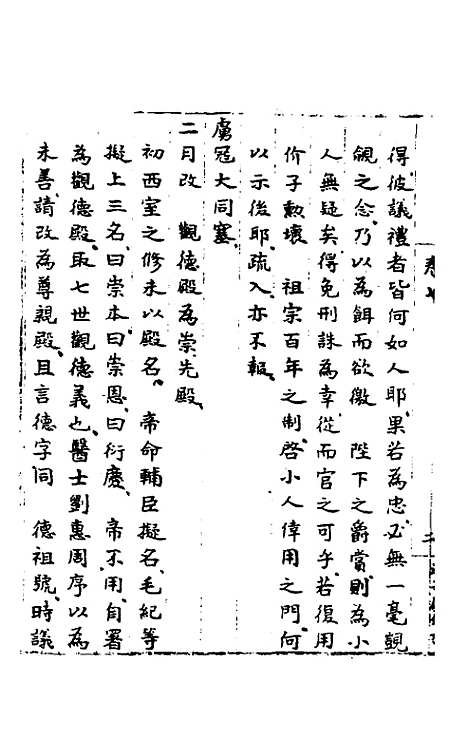 得彼議禮者皆何如人耶果若為忠必無一毫覬
覦之念乃以為餌而欲徼 陛下之爵賞則為小
人無疑矣得免刑誅為幸從而官之可乎若復用
价子敷壞 祖宗百年之制啓小人倖用之門何
以示後耶疏入亦不報
虜寇大同塞
二月改 觀德殿為崇先殿
初西室之修未以殿名 帝命輔臣擬名毛紀等
擬上三名曰崇本曰崇恩曰衍慶 帝不用自署
為觀德殿取七世觀德義也醫士劉惠周序以為
未善請改為尊親殿且言德字同 德祖號時議